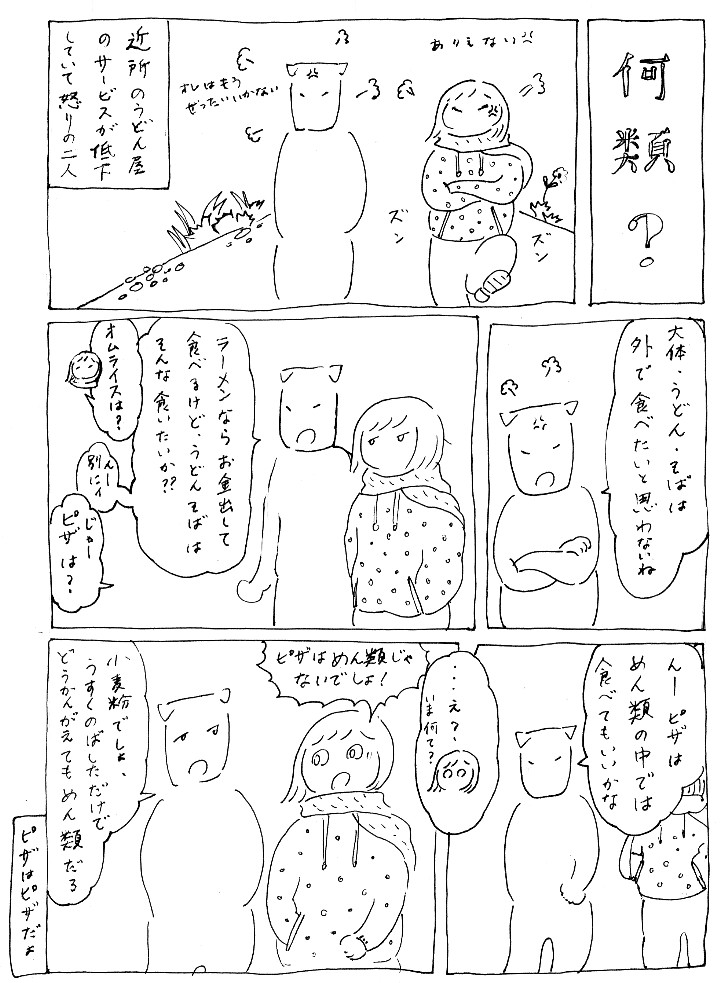 何
類
?
ありえない
オレはもう
ぜったいいかない
ズン
ズン
近所のうどん屋
のサービスが低下
していて怒りの二人
大体、うどん・そばは
外で食べたいと思わないね
ラーメンならお金出して
食べるけど、うどんそばは
そんな食いたいか??
オムライスは?
んー
別にィ
じゃー
ピザは?
んーピザは
めん類の中では
食べてもいいかな
・・・え?、
いま何て?
ピザはめん類じゃ
ないでしょ!
小麦粉でしょ、
うすくのばしただけで
どうかんがえてもめん類だろ
ピザはピザだよ